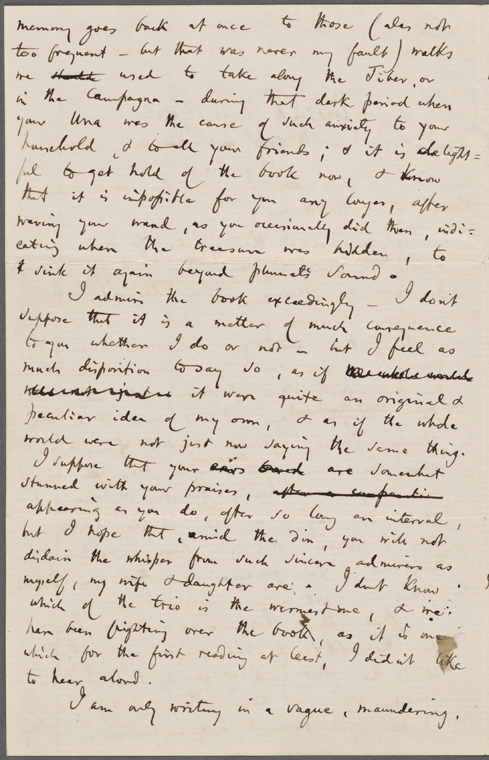 memory goes back at once to those (alas not
too frequent – but that was never my fault) walks
we used to take along the Tiber, or
in the Campagna – during that dark period when
your Una was the cause of such anxiety to your
household, & to all your friends; & it is delight=
ful to get hold of the book now, & know
that it is impossible for you any longer, after
waving your wand, as you occasionally did then, indi=
cating where the treasure was hidden, to
sink it again beyond plummet's sound.
I admire the book exceedingly – I don't
suppose that it is a matter of much consequence
to you whether I do or not – but I feel as
much disposition to say so, as if the whole world
it were quite an original &
peculiar idea of my own, & as if the whole
world were not just now saying the same thing.
I suppose that your ears are somewhat
stunned with your praises, after a
appearing as you do, after so long an interval,
but I hope that, amid the din, you will not
disdain the whisper from such sincere admirers as
myself, my wife & daughter are. I don't know
which of the trio is the warmest one, & we
have been fighting over the book, as it is one
which for the first reading at least, I did not like
to hear aloud.
I am only writing in a vague, maundering,